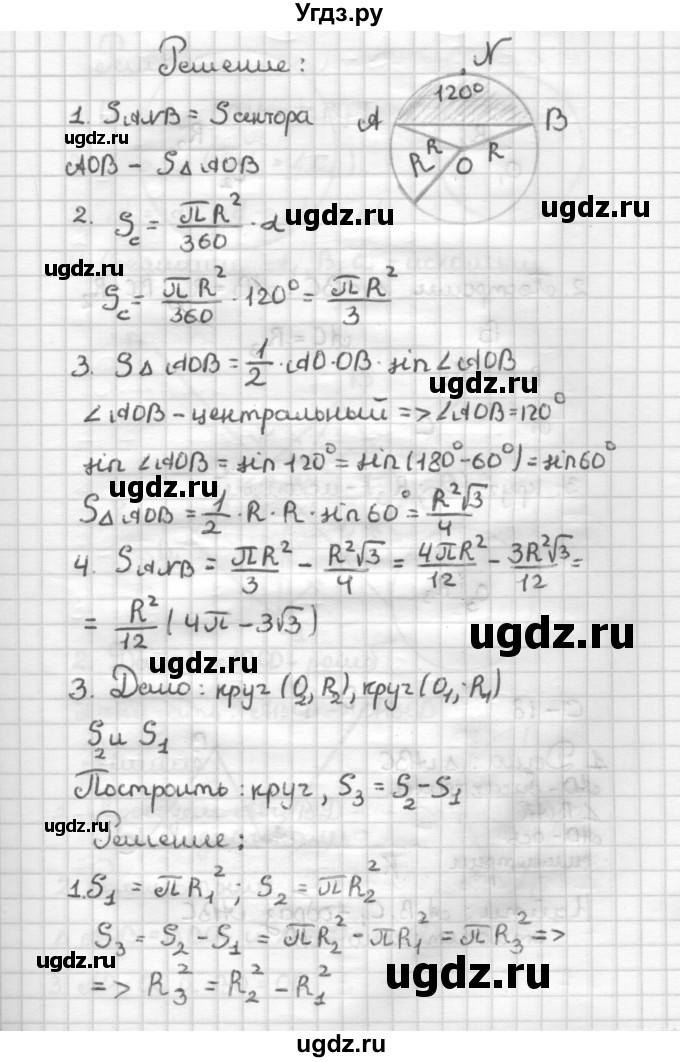 Угдз.ру
Решение:
N
120°
1. SANB = Sсектора
A
B
ugdz.ru
AOB - S△AOB
R
R
R
O
2. Sc = πR²/360 · α
ugdz.ru
ugdz.ru
ugdz.ru
Sc = πR²/360 · 120° = πR²/3
3. S△AOB = 1/2 · AO·OB · sin∠AOB
ugdz.ru
∠AOB - центральный => ∠AOB = 120°
sin ∠AOB = sin 120° = sin(180° - 60°) = sin 60°
ugdz.ru
S△AOB = 1/2 · R · R · sin 60° = R²√3/4
ugdz.ru
4. SANB = πR²/3 - R²√3/4 = 4πR²/12 - 3R²√3/12 =
= R²/12 (4π - 3√3)
ugdz.ru
ugdz.ru
3. Дано: круг (O₂, R₂), круг (O₁, R₁)
S₂ и S₁
Построить: круг, S₃ = S₂ - S₁
ugdz.ru
ugdz.ru
Решение:
1. S₁ = πR₁²; S₂ = πR₂²
S₃ = S₂ - S₁ = πR₂² - πR₁² = πR₃² =>
ugdz.ru
ugdz.ru
=> R₃² = R₂² - R₁²
ugdz.ru
ugdz.ru